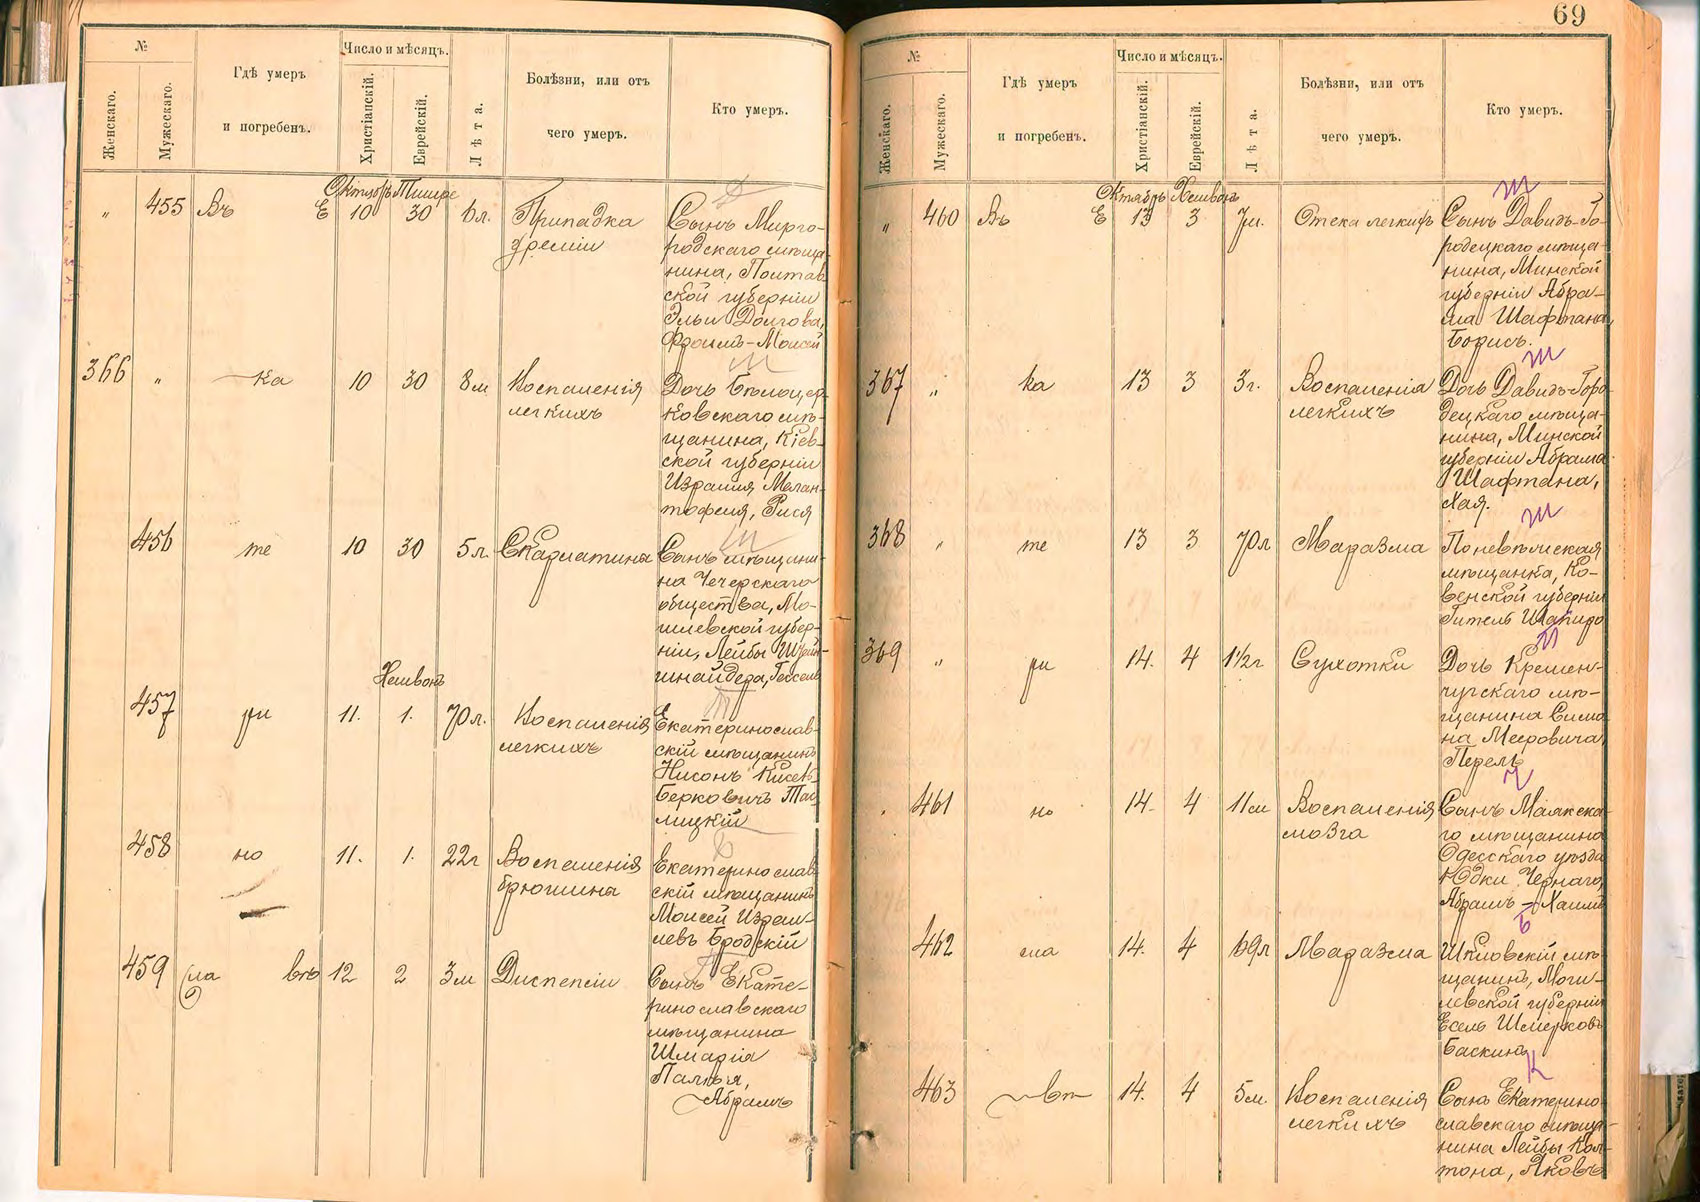 №
Женскаго.
Мужескаго.
Гдѣ умеръ
и погребенъ.
Число и мѣсяцъ.
Христіанскій.
Еврейскій.
Лѣта.
Болѣзни, или отъ
чего умеръ.
Кто умеръ.
Октябрь Тишре
„ 455 Въ Е 10 30 6л. Припадка
Сынъ Мирго-
родскаго мѣща-
нина, Полтав
ской губерніи
Эльи Долгова,
Фроимъ-Моисей
366 „ ка 10 30 8м Воспаленія
легкихъ
Дочь Бѣлоцер-
ковскаго мѣ-
щанина, Кіев-
ской губерніи
Израиля
Рися
456 те 10 30 5л. Скарлатина
Сынъ мѣщани-
на Чечерскаго
общества, Мо-
гилевской губер-
ніи, Лейбы Штейн-
шнайдера,
Хешвонъ
457 ри 11. 1. 70л. Воспаленія
легкихъ
Екатеринослав-
скій мѣщанинъ
Нисонъ
Берковичъ
458 но 11. 1. 22г Воспаленія
брюшины
Екатеринослав
скій мѣщанинъ
Моисей Израи-
левъ Бродскій
459 сла въ 12 2 3м Диспепсіи
Сынъ Екате-
ринославскаго
мѣщанина
Шмарія
Палья,
Абрамъ
69
№
Женскаго.
Мужескаго.
Гдѣ умеръ
и погребенъ.
Число и мѣсяцъ.
Христіанскій.
Еврейскій.
Лѣта.
Болѣзни, или отъ
чего умеръ.
Кто умеръ.
Октябрь Хешвонъ
Ш
„ 460 Въ Е 13 3 7м. Отека легкихъ
Сынъ Давидъ-Го-
родецкаго мѣща-
нина, Минской
губерніи Абра-
ма Шафтана,
Борисъ.
Ш
367 „ ка 13 3 3г. Воспаленія
легкихъ
Дочь Давидъ-Горо-
децкаго мѣща-
нина, Минской
губерніи Абрама
Шафтана,
Хая.
Ш
368 „ те 13 3 70л Маразма
Поневѣжская
мѣщанка, Ко-
венской губерніи
Гитель Шапиро
369 „ ри 14. 4 1½г Сухотки
Дочь Кремен-
чугскаго мѣ-
щанина Симо
на Мееровича,
Перель
Ч
461 но 14. 4 11м Воспаленія
мозга
Сынъ Маякска-
го мѣщанина
Одесскаго уѣзда
Юдки Чернаго,
Абрамъ-Хаимъ
Б
462 сла 14. 4 69л Маразма
Шкловскій мѣ
щанинъ, Моги-
левской губерніи
Есель Шмерковъ
Баскинъ
К
463 въ 14. 4 5м. Воспаленія
легкихъ
Сынъ Екатерино
славскаго мѣща-
нина Лейбы Кол-
тона, Яковъ